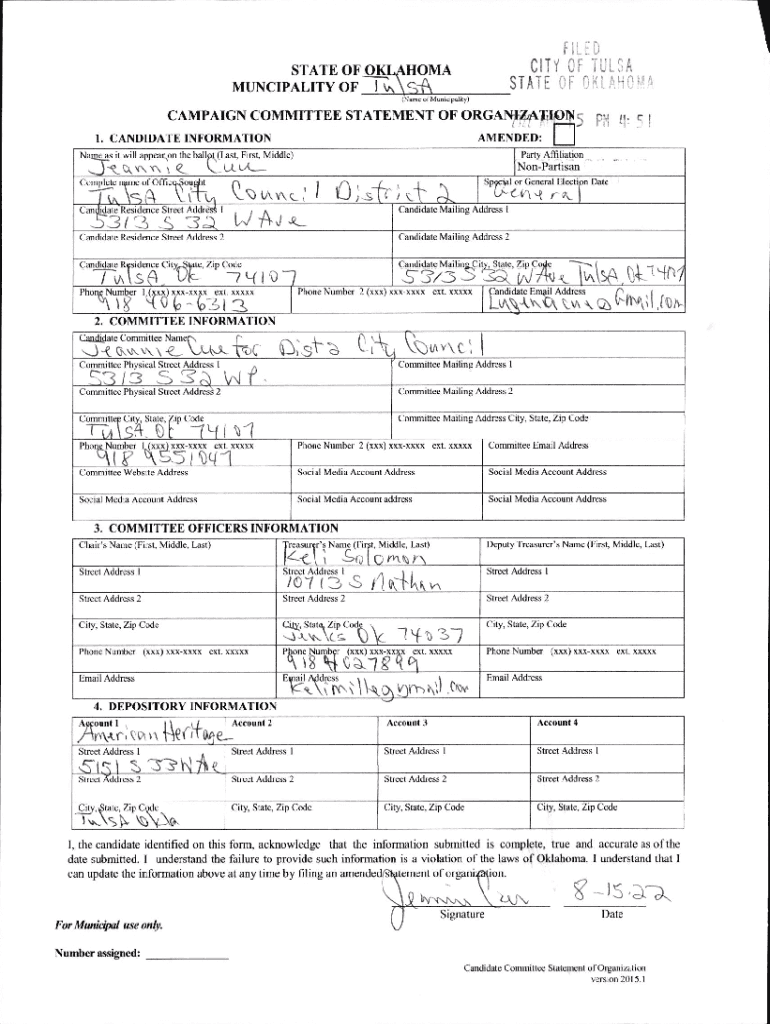 FILED
CITY OF TULSA
STATE OF OKLAHOMA
STATE OF OKLAHOMA
MUNCIPALITY OF TulsA
(Name of Municipality)
CAMPAIGN COMMITTEE STATEMENT OF ORGANIZATION
5 PM 4:51
1. CANDIDATE INFORMATION AMENDED:
Name as it will appear on the ballot (Last, First, Middle) Party Affiliation
Jeannie Cue Non-Partisan
Complete name of Office Sought Special or General Election Date
TulsA City Council District 2 General
Candidate Residence Street Address 1 Candidate Mailing Address 1
5313 S 32 W Ave
Candidate Residence Street Address 2 Candidate Mailing Address 2
Candidate Residence City, State, Zip Code Candidate Mailing City, State, Zip Code
TulsA, Ok 74107 5313 S 32 W Ave TulsA, Ok 74107
Phone Number 1 (xxx) xxx-xxxx ext. xxxxx Phone Number 2 (xxx) xxx-xxxx ext. xxxxx Candidate Email Address
918 406-6313 @Gmail.com
2. COMMITTEE INFORMATION
Candidate Committee Name
Jeannie Cue for Dist 2 City Council
Committee Physical Street Address 1 Committee Mailing Address 1
5313 S 32 W P.
Committee Physical Street Address 2 Committee Mailing Address 2
Committee City, State, Zip Code Committee Mailing Address City, State, Zip Code
TulsA Ok 74107
Phone Number 1 (xxx) xxx-xxxx ext. xxxxx Phone Number 2 (xxx) xxx-xxxx ext. xxxxx Committee Email Address
918 9551047
Committee Website Address Social Media Account Address Social Media Account Address
Social Media Account Address Social Media Account address Social Media Account Address
3. COMMITTEE OFFICERS INFORMATION
Chair's Name (First, Middle, Last) Treasurer's Name (First, Middle, Last) Deputy Treasurer's Name (First, Middle, Last)
Keli Solomon
Street Address 1 Street Address 1 Street Address 1
10713 S Nathan
Street Address 2 Street Address 2 Street Address 2
City, State, Zip Code City, State, Zip Code City, State, Zip Code
Jenks Ok 74037
Phone Number (xxx) xxx-xxxx ext. xxxxx Phone Number (xxx) xxx-xxxx ext. xxxxx Phone Number (xxx) xxx-xxxx ext. xxxxx
918 4027899
Email Address Email Address Email Address
4. DEPOSITORY INFORMATION
Account 1 Account 2 Account 3 Account 4
American Heritage
Street Address 1 Street Address 1 Street Address 1 Street Address 1
5151 S 33 W Ave
Street Address 2 Street Address 2 Street Address 2 Street Address 2
City, State, Zip Code City, State, Zip Code City, State, Zip Code City, State, Zip Code
TulsA Okla
I, the candidate identified on this form, acknowledge that the information submitted is complete, true and accurate as of the
date submitted. I understand the failure to provide such information is a violation of the laws of Oklahoma. I understand that I
can update the information above at any time by filing an amended Statement of organization.
Jeannie Cue 8-15-22
Signature Date
For Municipal use only.
Number assigned:
Candidate Committee Statement of Organization
version 2015.1